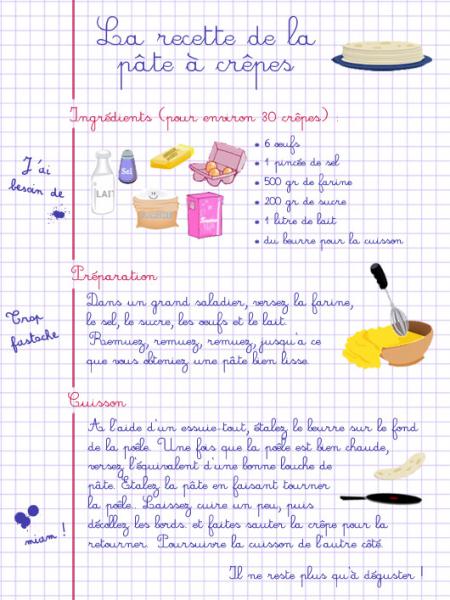 La recette de la
pâte à crêpes
Ingrédients (pour environ 30 crêpes) :
J'ai
besoin de
LAIT
Sel
• 6 œufs
• 1 pincée de sel
• 500 gr de farine
• 200 gr de sucre
• 1 litre de lait
• du beurre pour la cuisson
Préparation
Trop
fastoche
Dans un grand saladier, versez la farine,
le sel, le sucre, les œufs et le lait.
Remuez, remuez, remuez, jusqu'a ce
que vous obteniez une pâte bien lisse.
Cuisson
A l'aide d'un essuie-tout, étalez le beurre sur le fond
de la poêle. Une fois que la poêle est bien chaude,
versez l'équivalent d'une bonne louche de
pâte. Etalez la pâte en faisant tourner
la poêle. Laissez cuire un peu, puis
décollez les bords. et faites sauter la crêpe pour la
retourner. Poursuivre la cuisson de l'autre côté.
miam !
Il ne reste plus qu'à déguster !